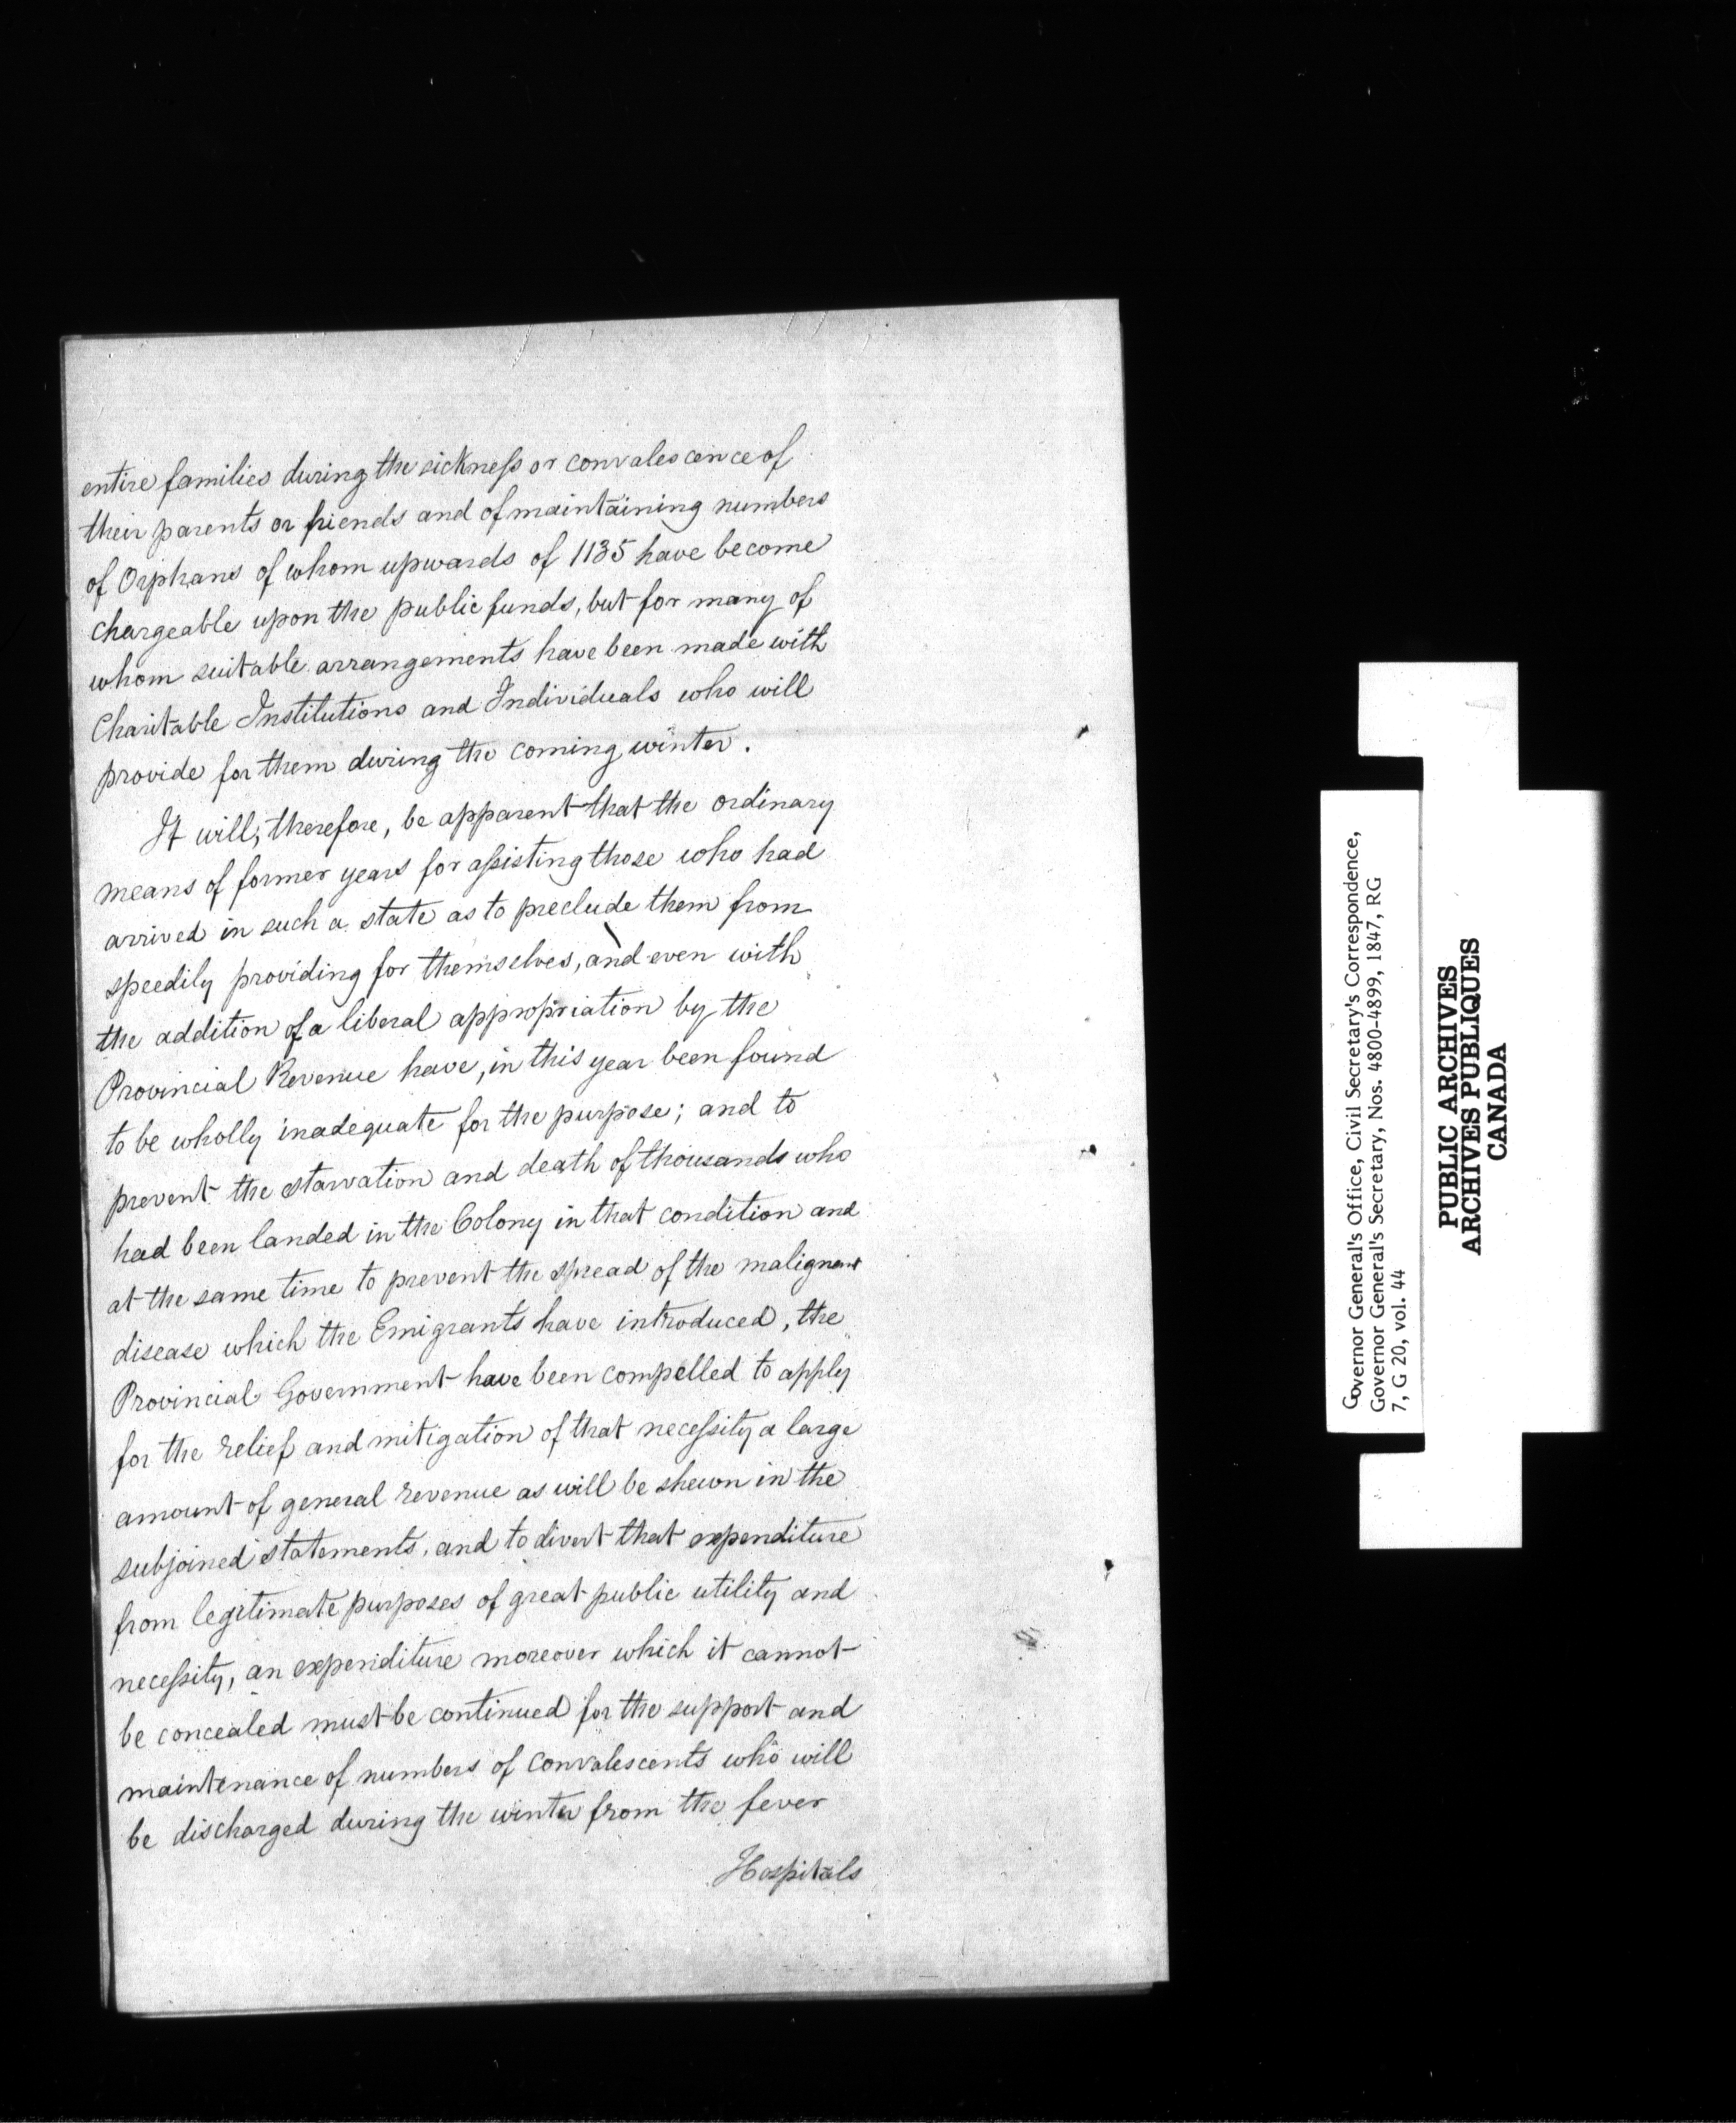 entire families during the sickness or convalescence of
their parents or friends and of maintaining numbers
of Orphans of whom upwards of 1135 have become
chargeable upon the public funds, but for many of
whom suitable arrangements have been made with
Charitable Institutions and Individuals who will
provide for them during the coming winter.
It will, therefore, be apparent that the ordinary
means of former years for assisting those who had
arrived in such a state as to preclude them from
speedily providing for themselves, and even with
the addition of a liberal appropriation by the
Provincial Revenue have, in this year been found
to be wholly inadequate for the purpose; and to
prevent the starvation and death of thousands who
had been landed in the Colony in that condition and
at the same time to prevent the spread of the malignant
disease which the Emigrants have introduced, the
Provincial Government have been compelled to apply
for the relief and mitigation of that necessity a large
amount of general revenue as will be shewn in the
subjoined statements, and to divert that expenditure
from legitimate purposes of great public utility and
necessity, an expenditure moreover which it cannot
be concealed must be continued for the support and
maintenance of numbers of convalescents who will
be discharged during the winter from the fever
Hospitals
Governor General's Office, Civil Secretary's Correspondence,
Governor General's Secretary, Nos. 4800-4899, 1847, RG
7, G 20, vol. 44
PUBLIC ARCHIVES
ARCHIVES PUBLIQUES
CANADA